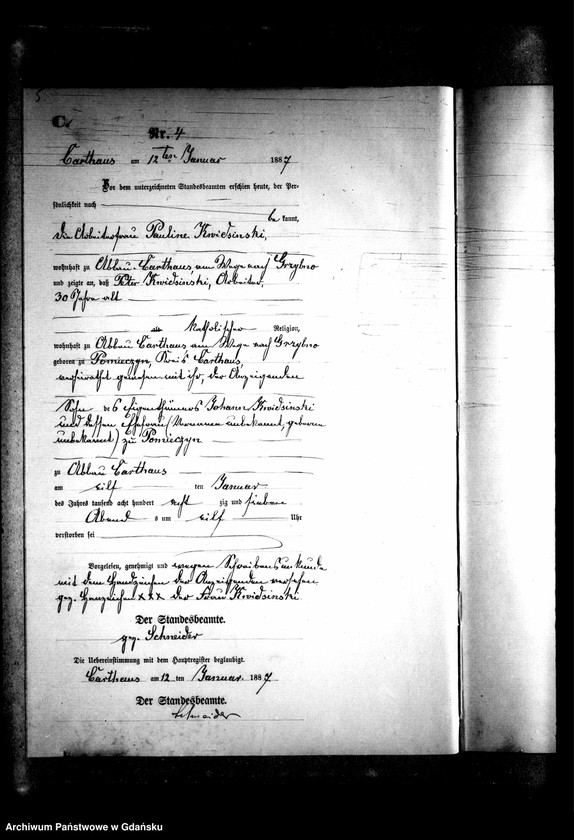 5
C.
Nr. 4
Carthaus am 12ten Januar 1887
Vor dem unterzeichneten Standesbeamten erschien heute, der Per-
sönlichkeit nach
be kannt,
die Arbeiterfrau Pauline Kwidsinski,
wohnhaft zu Abbau-Carthaus am Wege nach Grzybno
und zeigte an, daß Peter Kwidsinski, Arbeiter,
30 Jahre alt
katholischer Religion,
wohnhaft zu Abbau Carthaus am Wege nach Grzybno
geboren zu Pomieczyn, Kreis Carthaus,
verheirathet gewesen mit ihr, der Anzeigenden
Sohn des Eigenthümers Johann Kwidsinski
und dessen Ehefrau (Vornamen unbekannt, geborene
unbekannt) zu Pomieczyn
zu Abbau Carthaus
am eilf ten Januar
des Jahres tausend acht hundert acht zig und sieben
Abend s um eilf Uhr
verstorben sei
Vorgelesen, genehmigt und wegen Schreibensunkunde
mit dem Handzeichen der Anzeigenden versehen
gez. Handzeichen xxx der Frau Kwidsinski
Der Standesbeamte.
gez. Schneider
Die Uebereinstimmung mit dem Hauptregister beglaubigt.
Carthaus am 12 ten Januar 1887
Der Standesbeamte.
Schneider
Archiwum Państwowe w Gdańsku